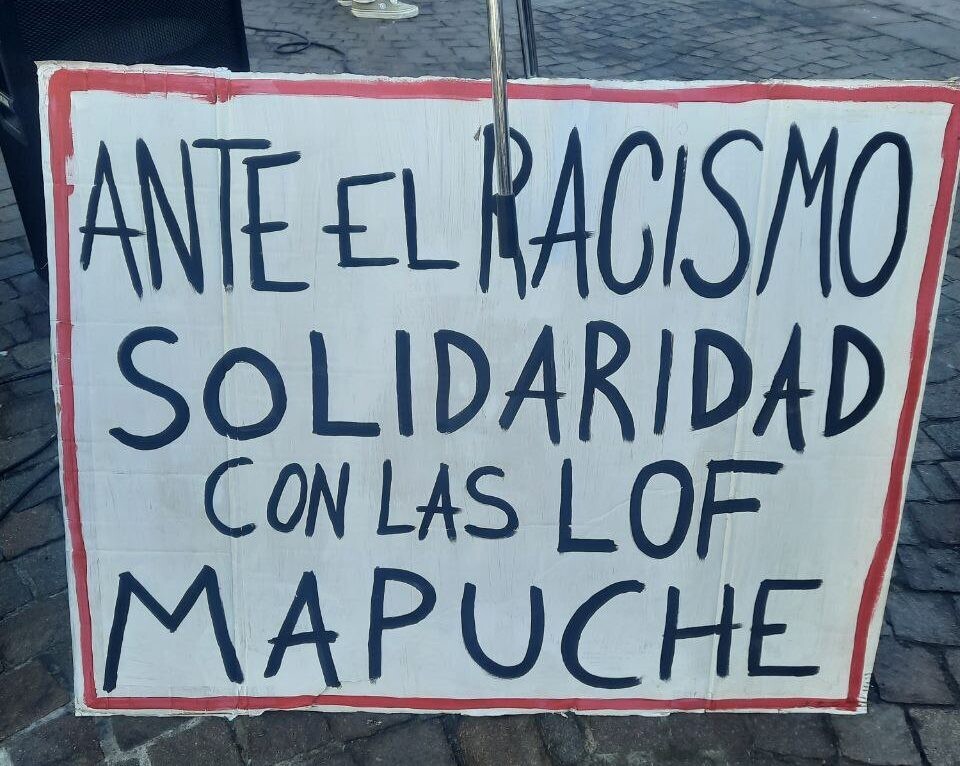 ANTE EL RACISMO
SOLIDARIDAD
CON LAS LOF
MAPUCHE